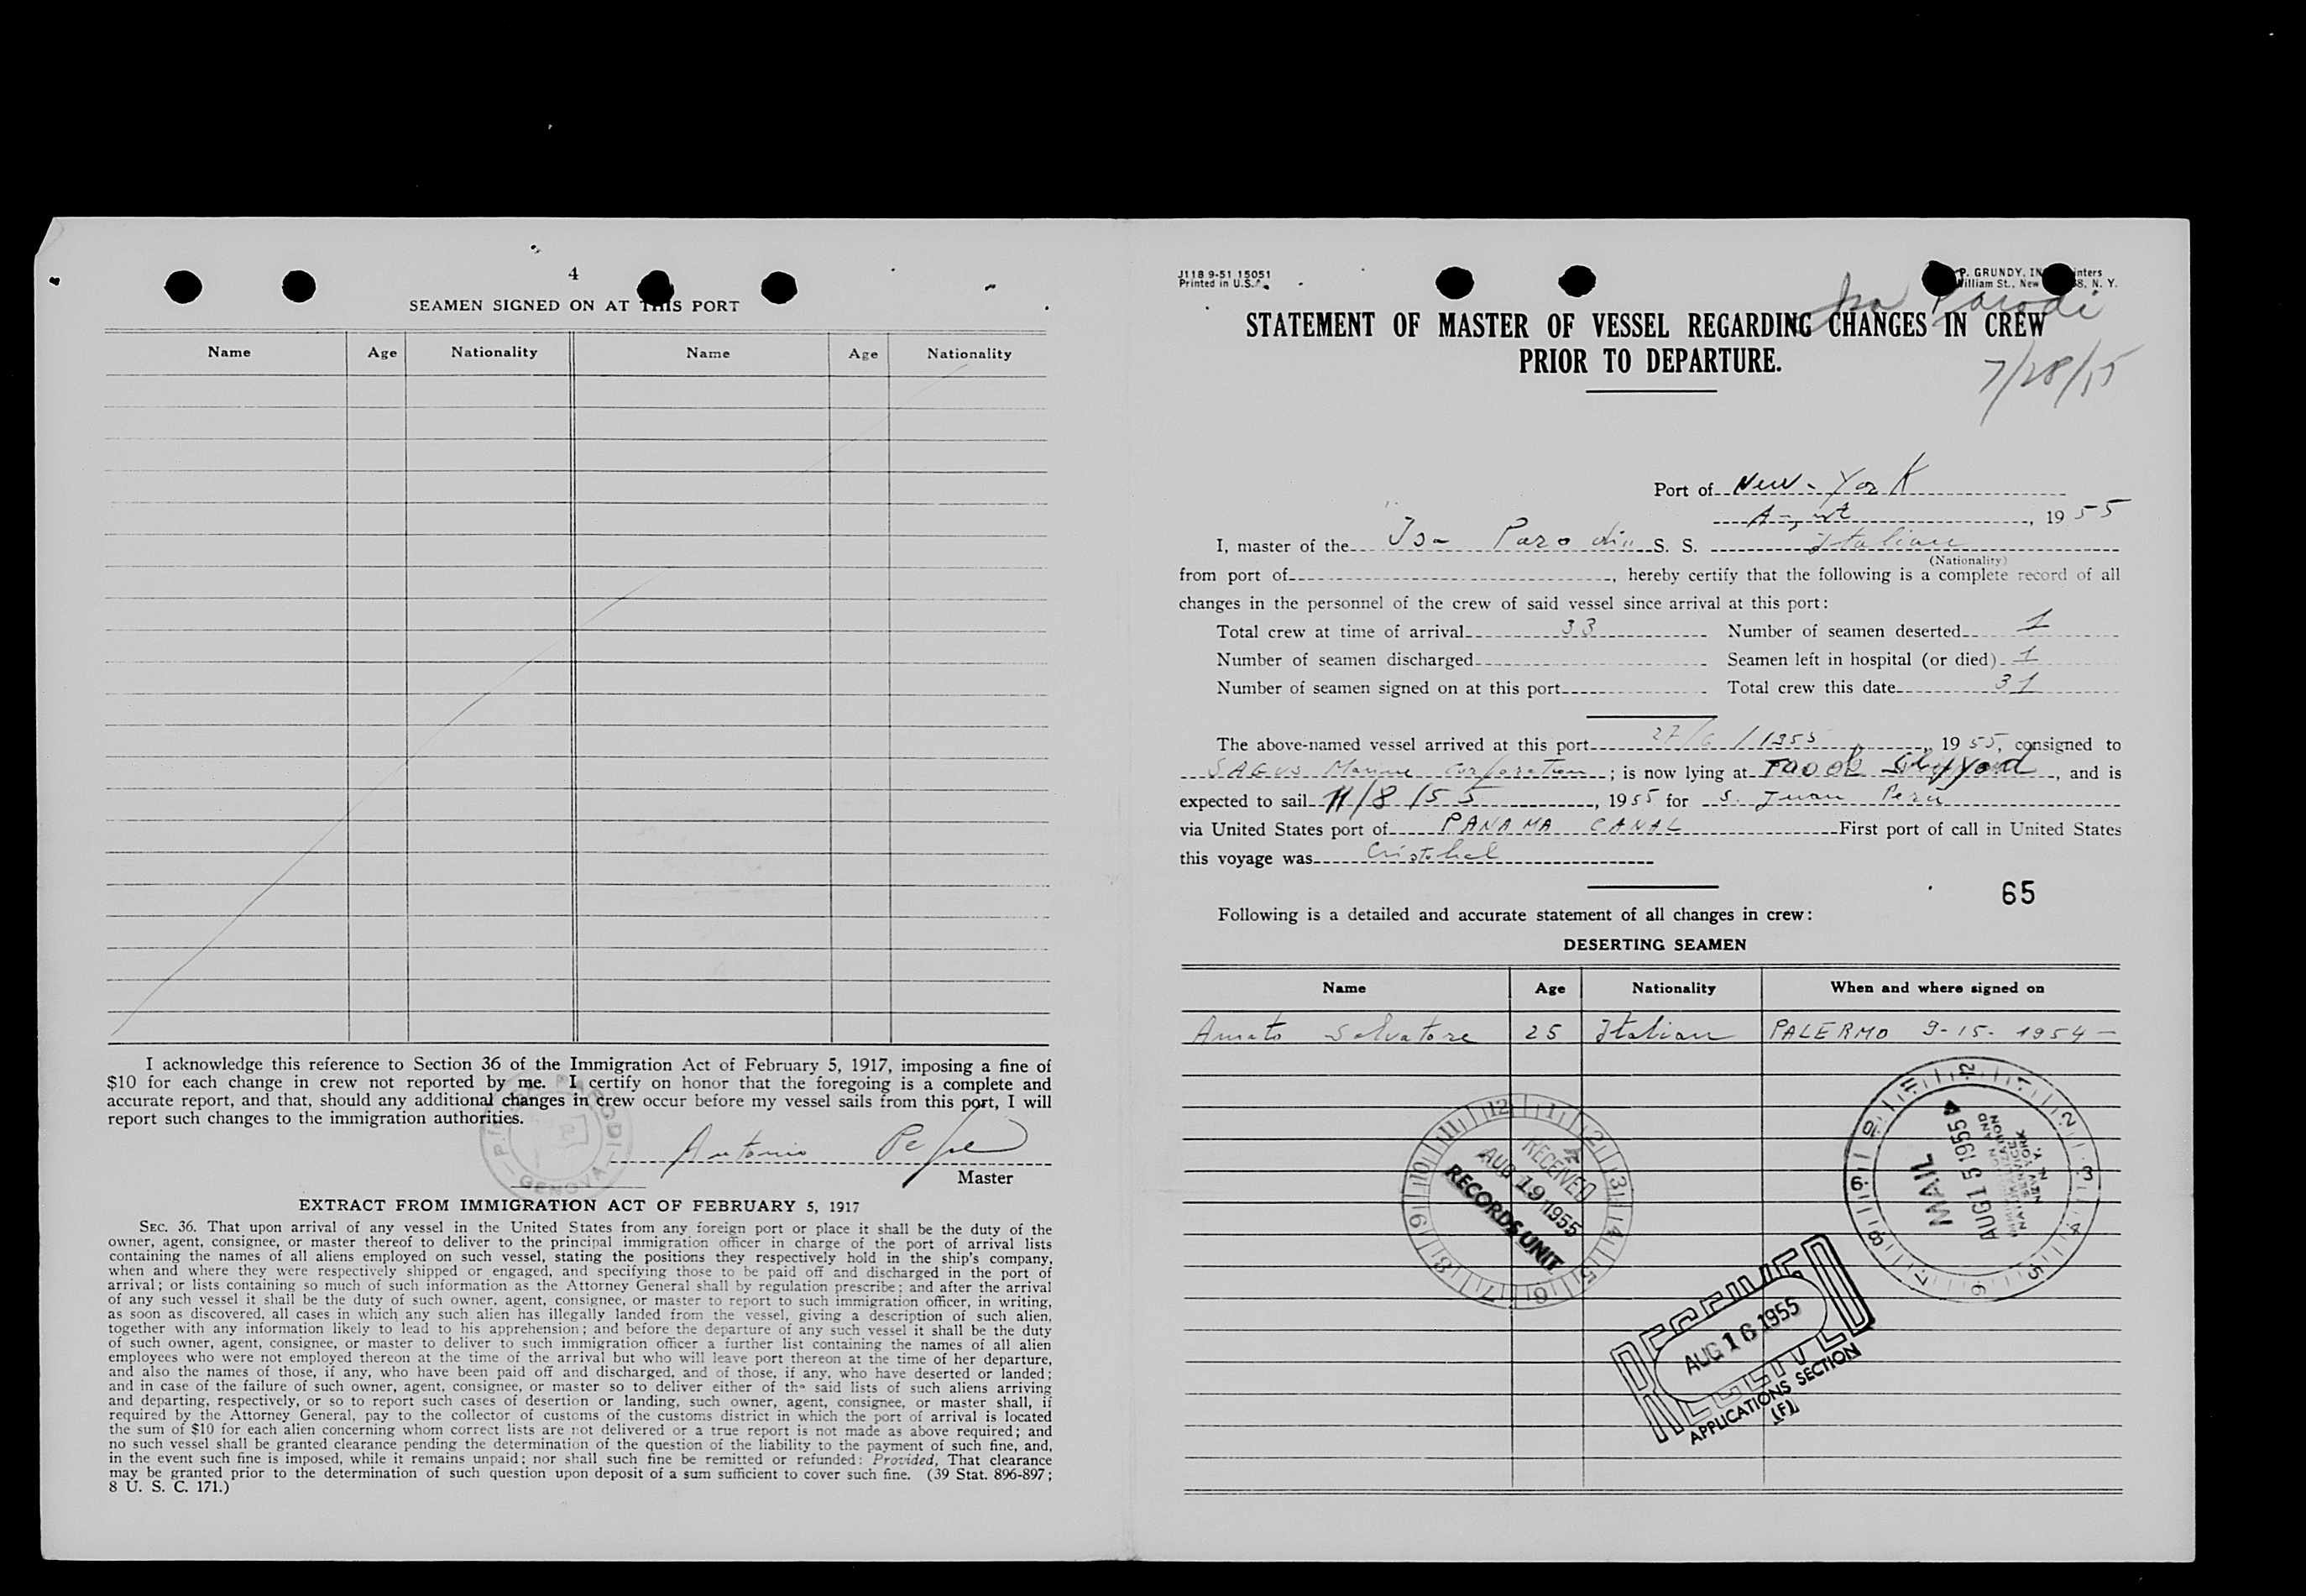 4
SEAMEN SIGNED ON AT THIS PORT
Name Age Nationality Name Age Nationality
I acknowledge this reference to Section 36 of the Immigration Act of February 5, 1917, imposing a fine of
$10 for each change in crew not reported by me. I certify on honor that the foregoing is a complete and
accurate report, and that, should any additional changes in crew occur before my vessel sails from this port, I will
report such changes to the immigration authorities.
GENOVA
Antonio
Master
EXTRACT FROM IMMIGRATION ACT OF FEBRUARY 5, 1917
SEC. 36. That upon arrival of any vessel in the United States from any foreign port or place it shall be the duty of the
owner, agent, consignee, or master thereof to deliver to the principal immigration officer in charge of the port of arrival lists
containing the names of all aliens employed on such vessel, stating the positions they respectively hold in the ship's company,
when and where they were respectively shipped or engaged, and specifying those to be paid off and discharged in the port of
arrival; or lists containing so much of such information as the Attorney General shall by regulation prescribe; and after the arrival
of any such vessel it shall be the duty of such owner, agent, consignee, or master to report to such immigration officer, in writing,
as soon as discovered, all cases in which any such alien has illegally landed from the vessel, giving a description of such alien,
together with any information likely to lead to his apprehension; and before the departure of any such vessel it shall be the duty
of such owner, agent, consignee, or master to deliver to such immigration officer a further list containing the names of all alien
employees who were not employed thereon at the time of the arrival but who will leave port thereon at the time of her departure,
and also the names of those, if any, who have been paid off and discharged, and of those, if any, who have deserted or landed;
and in case of the failure of such owner, agent, consignee, or master so to deliver either of the said lists of such aliens arriving
and departing, respectively, or so to report such cases of desertion or landing, such owner, agent, consignee, or master shall, if
required by the Attorney General, pay to the collector of customs of the customs district in which the port of arrival is located
the sum of $10 for each alien concerning whom correct lists are not delivered or a true report is not made as above required; and
no such vessel shall be granted clearance pending the determination of the question of the liability to the payment of such fine, and,
in the event such fine is imposed, while it remains unpaid; nor shall such fine be remitted or refunded: Provided, That clearance
may be granted prior to the determination of such question upon deposit of a sum sufficient to cover such fine. (39 Stat. 896-897;
8 U. S. C. 171.)
J118 9-51 15051
Printed in U.S.A.
P. GRUNDY, IN
William St., New N. Y.
Isa Parodi
STATEMENT OF MASTER OF VESSEL REGARDING CHANGES IN CREW
PRIOR TO DEPARTURE.
7/28/55
Port of New-York
August, 1955
I, master of the "Isa Parodi" S. S. Italian
(Nationality)
from port of, hereby certify that the following is a complete record of all
changes in the personnel of the crew of said vessel since arrival at this port:
Total crew at time of arrival 33 Number of seamen deserted 1
Number of seamen discharged Seamen left in hospital (or died) 1
Number of seamen signed on at this port Total crew this date 31
The above-named vessel arrived at this port 27/6/1955, 1955, consigned to
SAGUS Marine Corporation; is now lying at Shipyard, and is
expected to sail 11/8/55, 1955 for S. Juan Peru
via United States port of PANAMA CANAL First port of call in United States
this voyage was Cristobal
65
Following is a detailed and accurate statement of all changes in crew:
DESERTING SEAMEN
Name Age Nationality When and where signed on
Amato Salvatore 25 Italian PALERMO 9-15-1954
RECEIVED
AUG 19 1955
RECORDS UNIT
MAIL
AUG 15 1955
RECEIVED
AUG 16 1955
APPLICATIONS SECTION
(F)